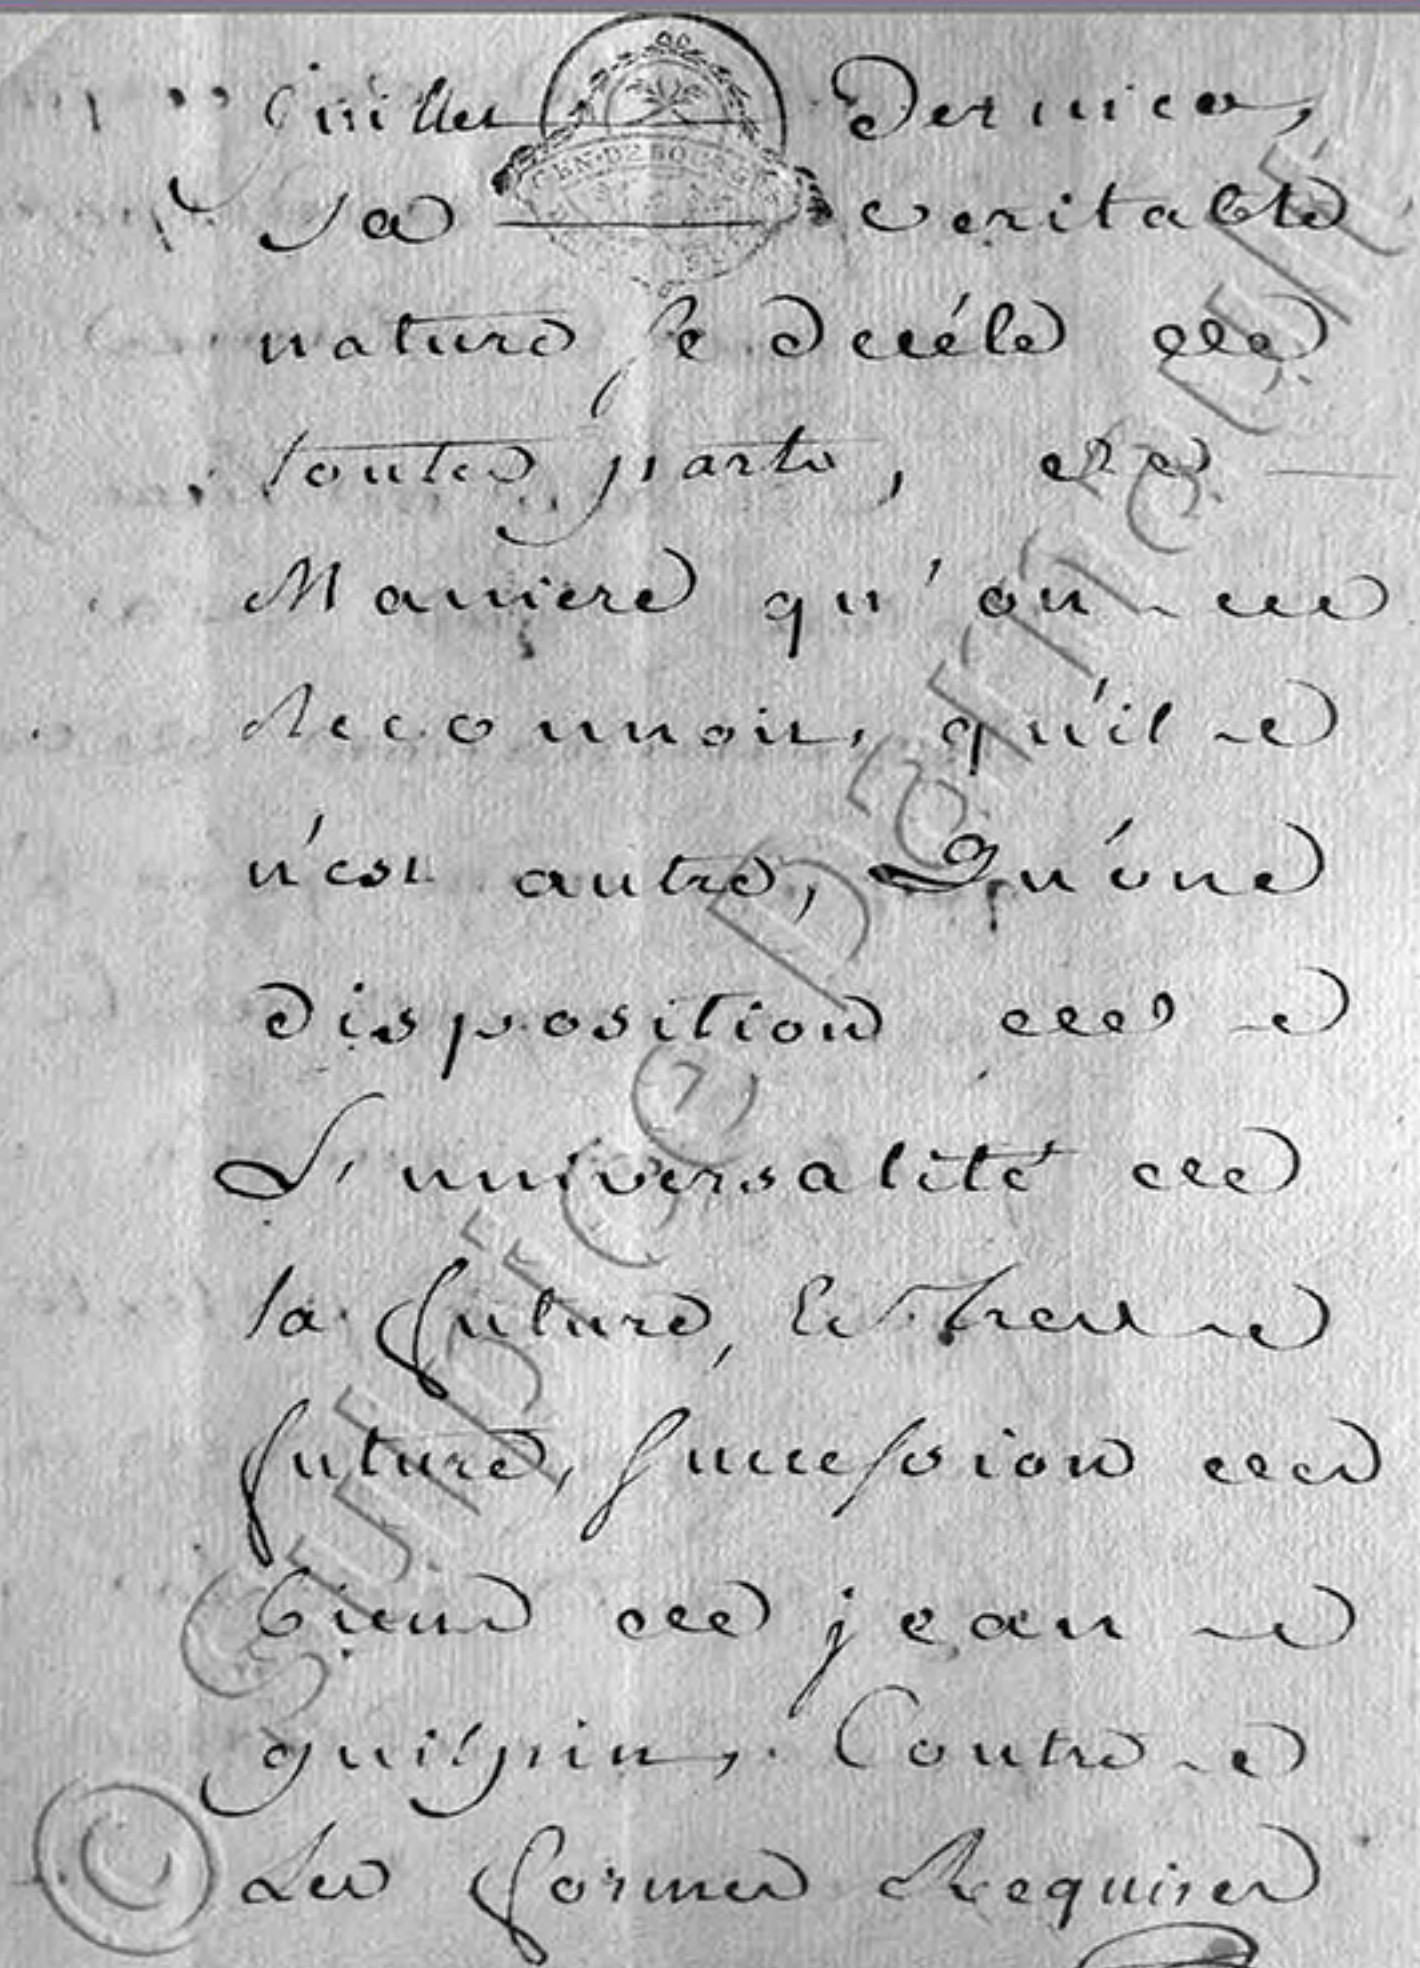 juillet dernier,
GEN. DE BOURGES
Sa veritable
nature se decéle de
toutes parts, de
Maniere qu'on
Reconnoit, qu'il
n'est autre, Qu'une
disposition de
L'universalité de
la future, Et tres
future, succession des
biens de jean
guilpin, Contre
Les formes Requises
© Subdice Dominique